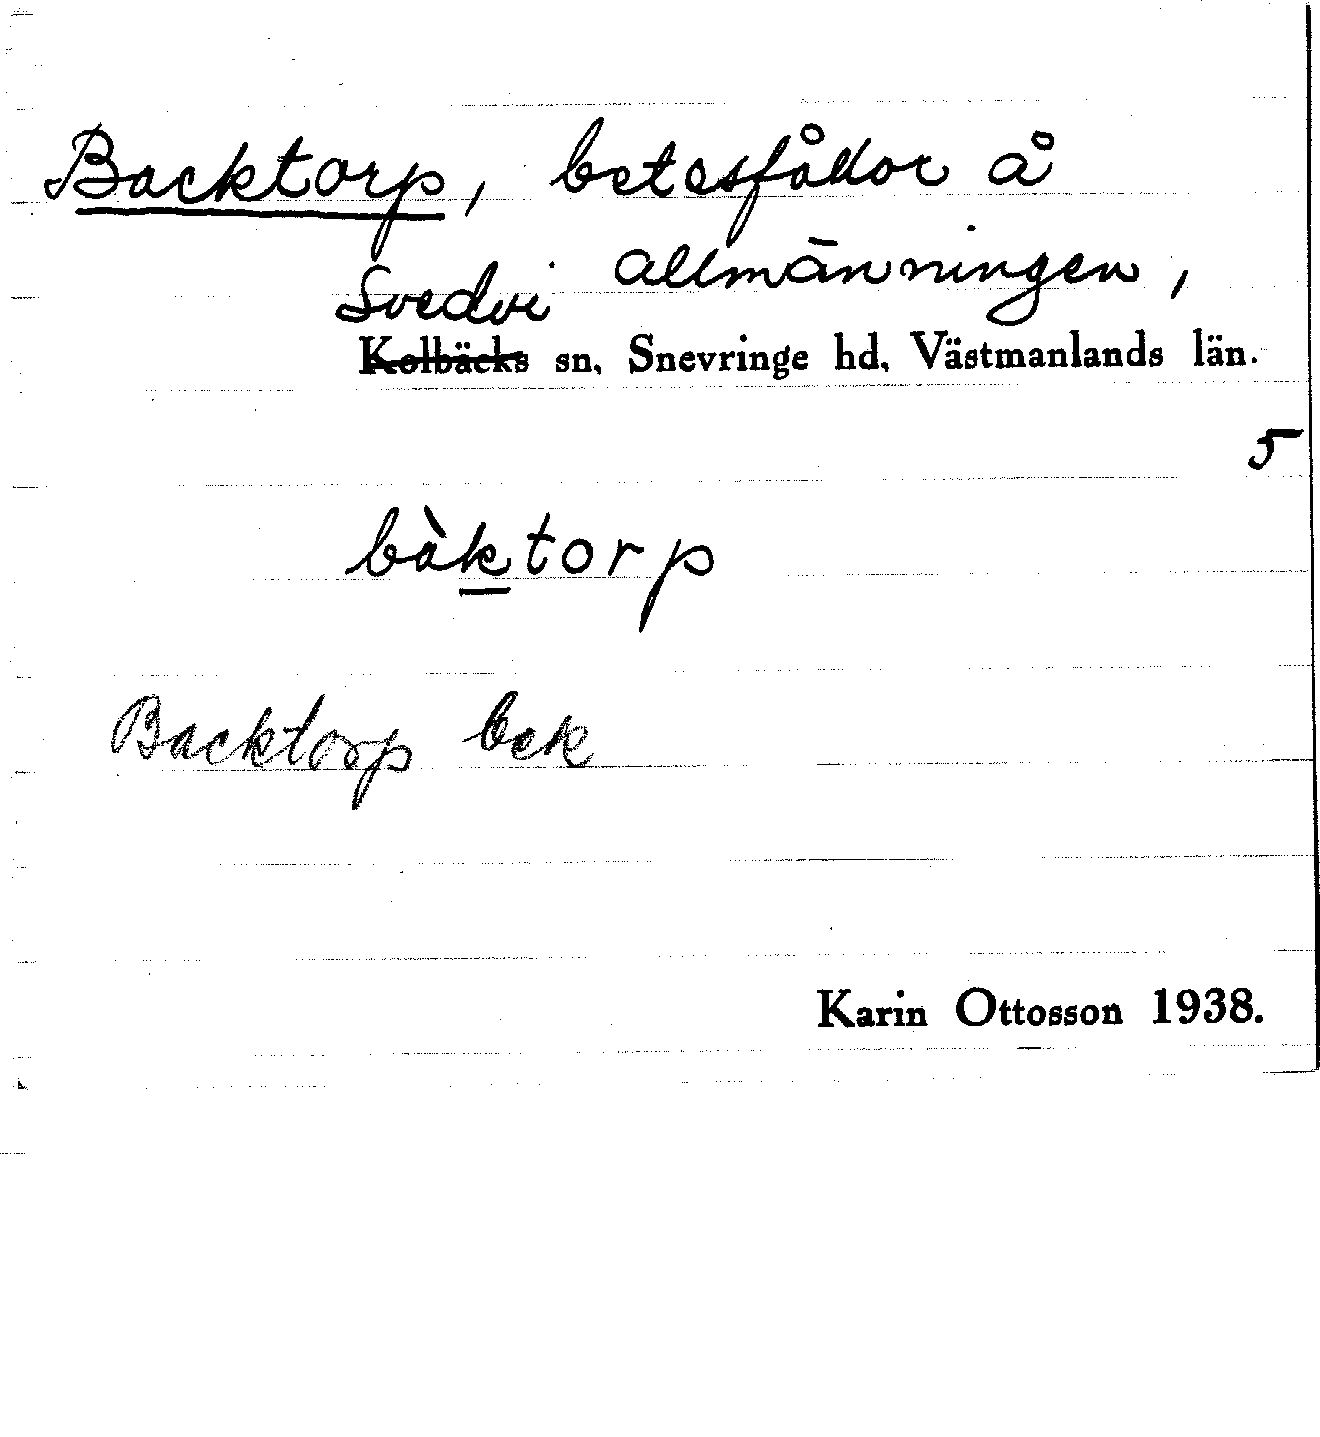 Backtorp, betesfållor å
allmänningen,
Svedvi
Kolbäcks sn, Snevringe hd, Västmanlands län.
5
bàktorp
Backtorp bek
Karin Ottosson 1938.